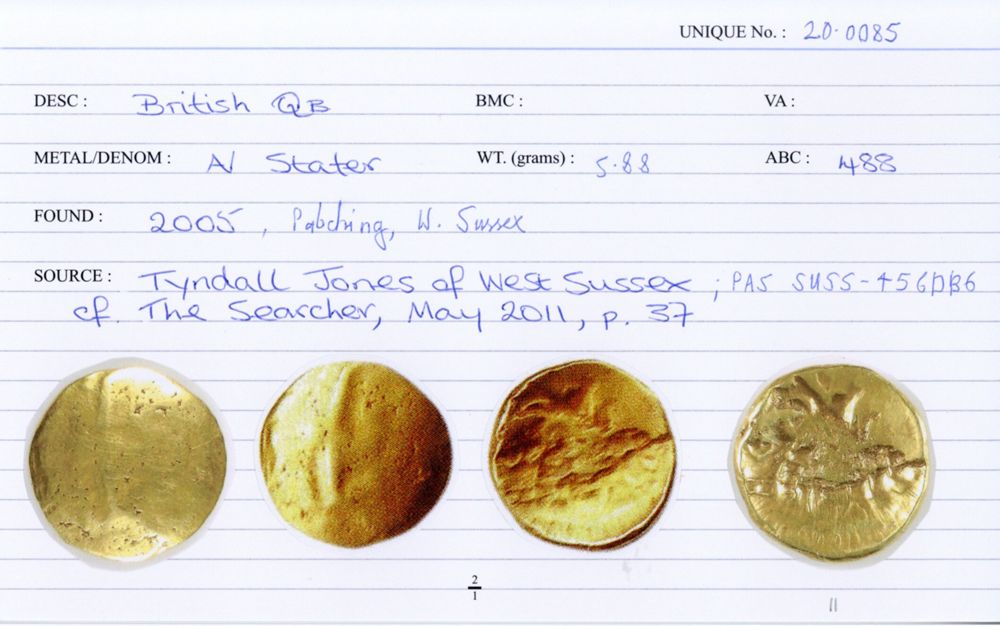 UNIQUE No. : 20·0085
DESC : British QB BMC : VA :
METAL/DENOM : A/ Stater WT. (grams) : 5·88 ABC : 488
FOUND : 2005, W. Sussex
SOURCE : Tyndall Jones of West Sussex ; PAS SUSS-
cf. The Searcher, May 2011, p. 37
2
1
11